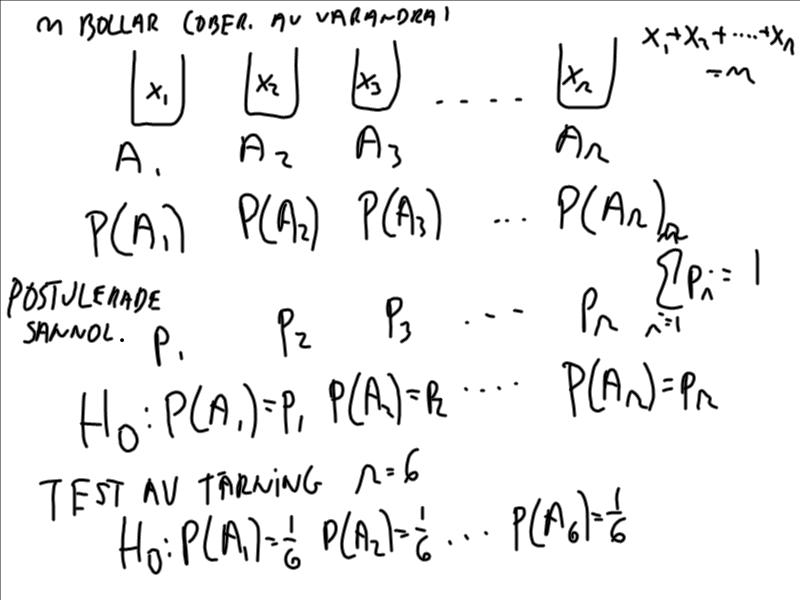 n BOLLAR (OBER. AV VARANDRA)
x₁+x₂+....+xᵣ
=n
x₁ x₂ x₃ .... xᵣ
A₁ A₂ A₃ Aᵣ
P(A₁) P(A₂) P(A₃) ... P(Aᵣ)
∑pᵢ=1
i=1
POSTULERADE
SANNOL.
p₁ p₂ p₃ .... pᵣ
H₀: P(A₁)=p₁ P(A₂)=p₂ .... P(Aᵣ)=pᵣ
TEST AV TÄRNING r=6
H₀: P(A₁)=1/6 P(A₂)=1/6 ... P(A₆)=1/6